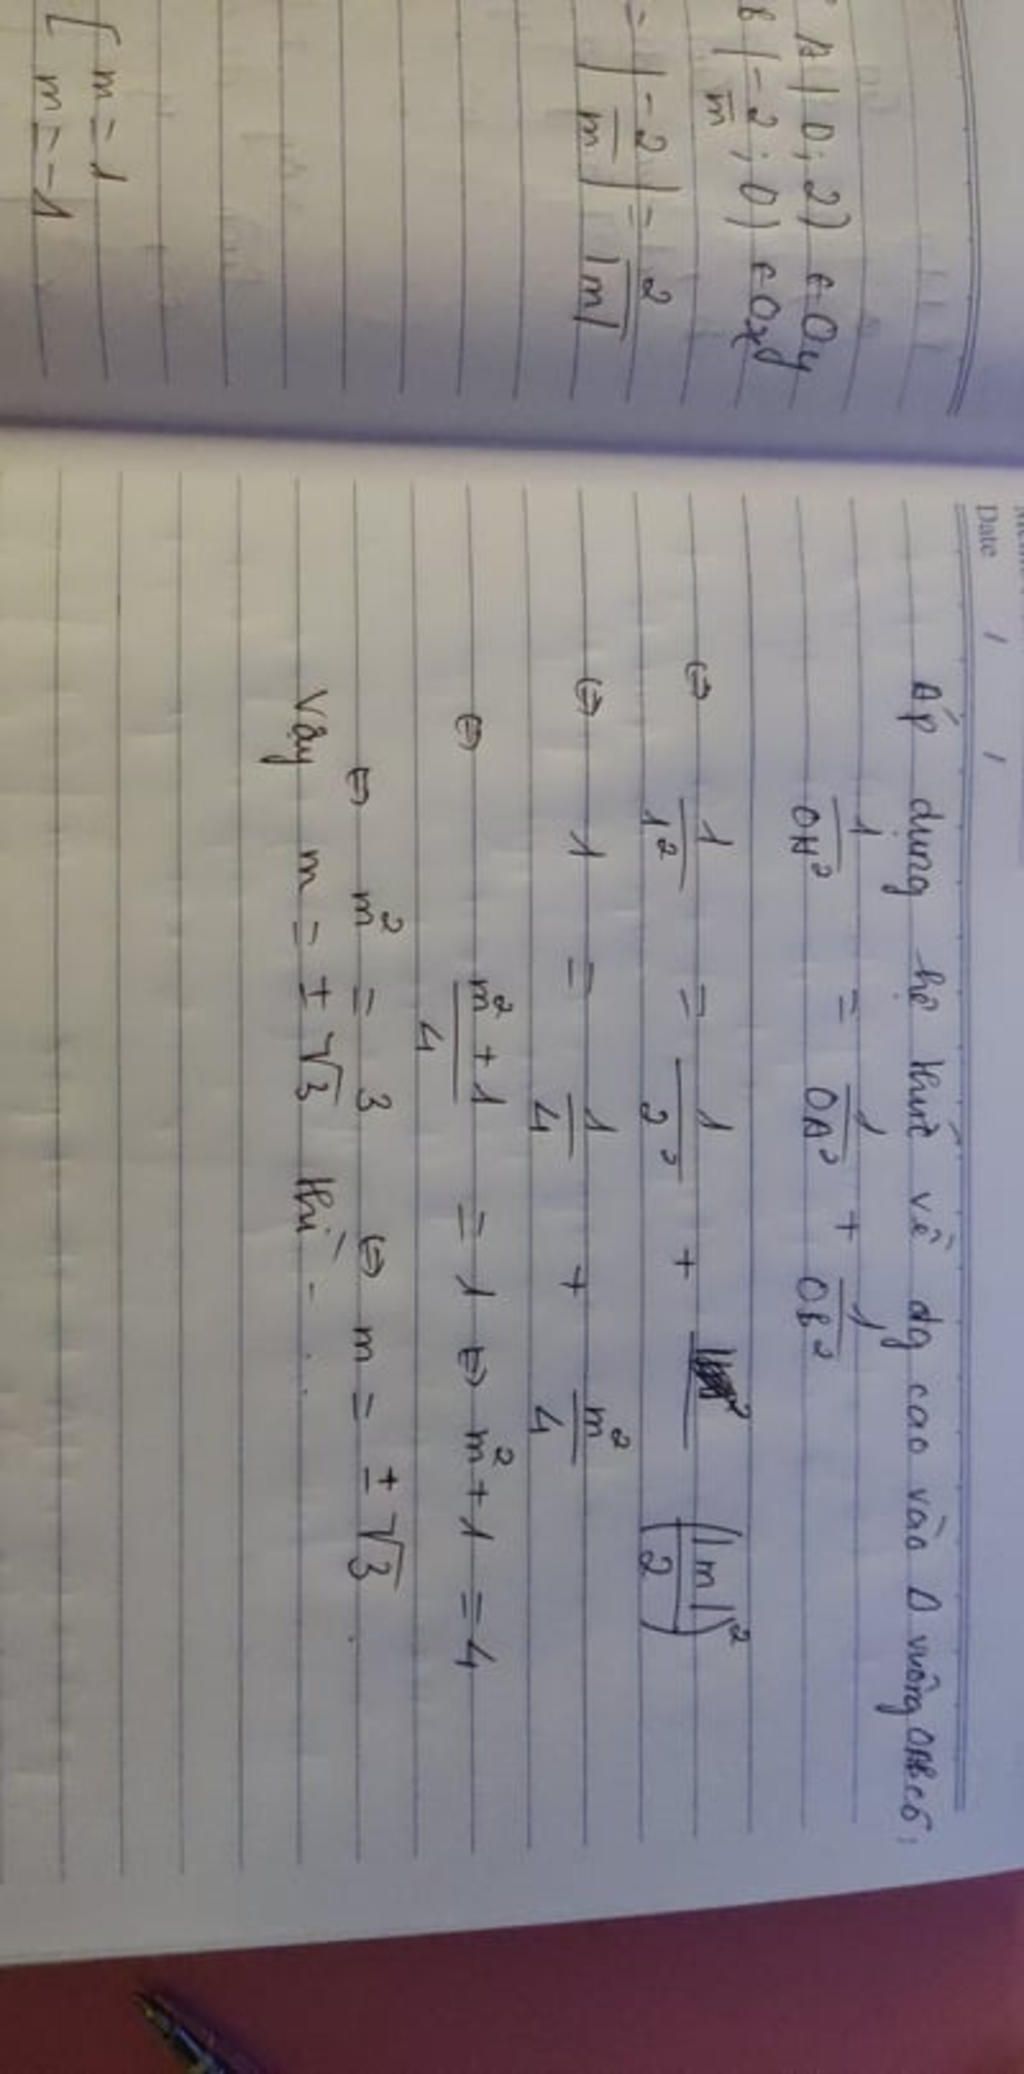 A(0; 2) ∈ Oy
B(-2/m; 0) ∈ Ox
= |-2/m| = 2/|m|
[ m = 1
m = -1
Date / /
Áp dụng hệ thức về đg cao vào Δ vuông OAB có:
1/OH² = 1/OA² + 1/OB²
⇔ 1/1² = 1/2² + (|m|/2)²
⇔ 1 = 1/4 + m²/4
⇔ m² + 1/4 = 1 ⇔ m² + 1 = 4
⇔ m² = 3 ⇔ m = ± √3
Vậy m = ± √3 thì ...